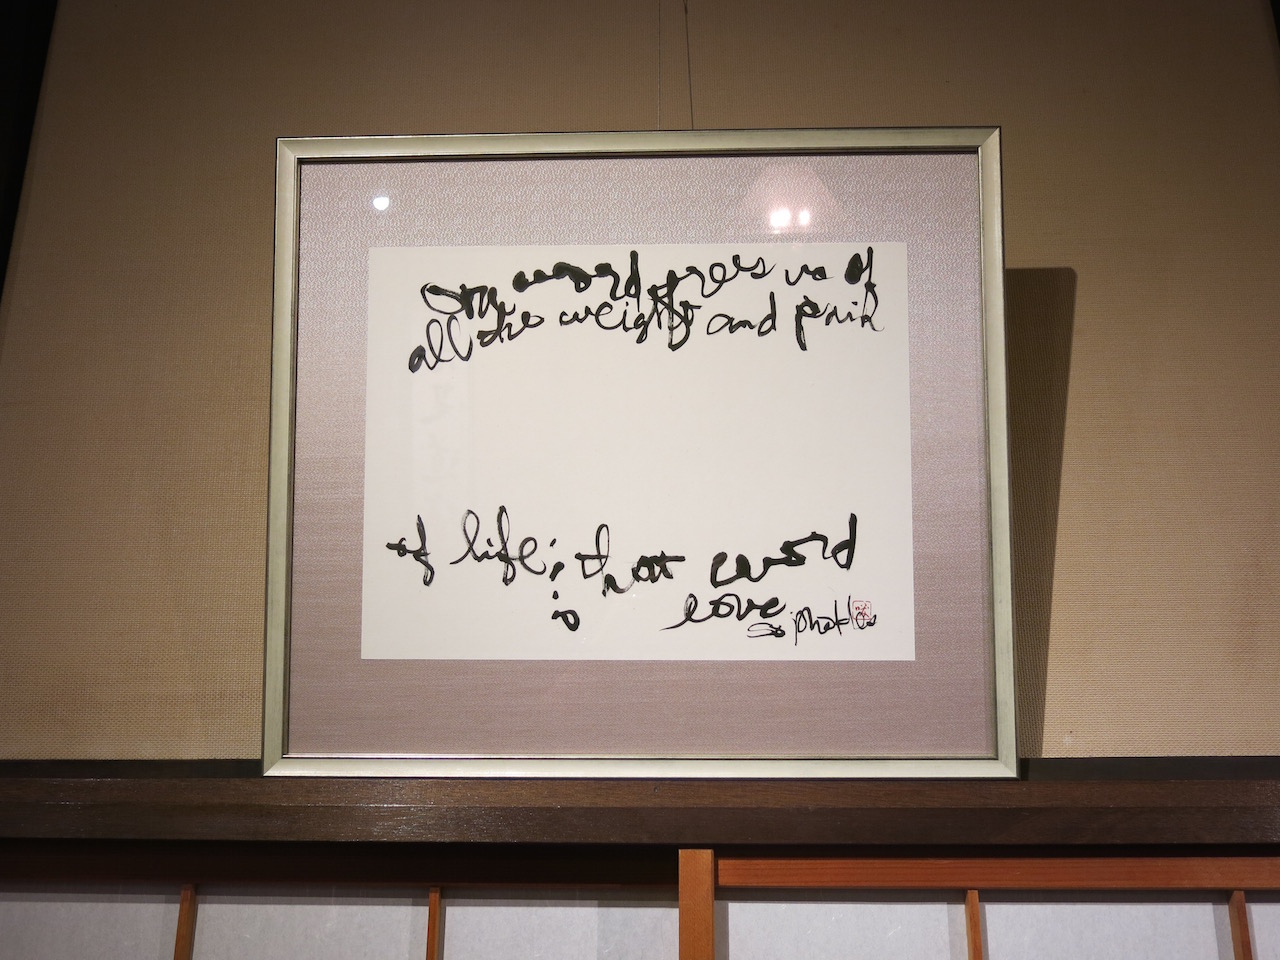 One word frees us of
all the weight and pain
of life: that word
is love
Sophokles